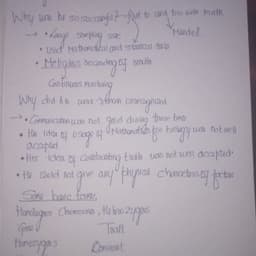 Why was he so successful? → First to use
Mendel
→ • Large sampling size
• Used Mathematical and statistical tools
• Meticulous recording of results
Continuous
Why did
→ • Communication was not good during those time
• His idea of usage of Mathematics for biology was not well
accepted
• His idea of truth was not well accepted.
• He could not give any physical characteristics of factor
Some basic terms
Homologous Chromosome, Heterozygous
Gene Trait
Homozygous